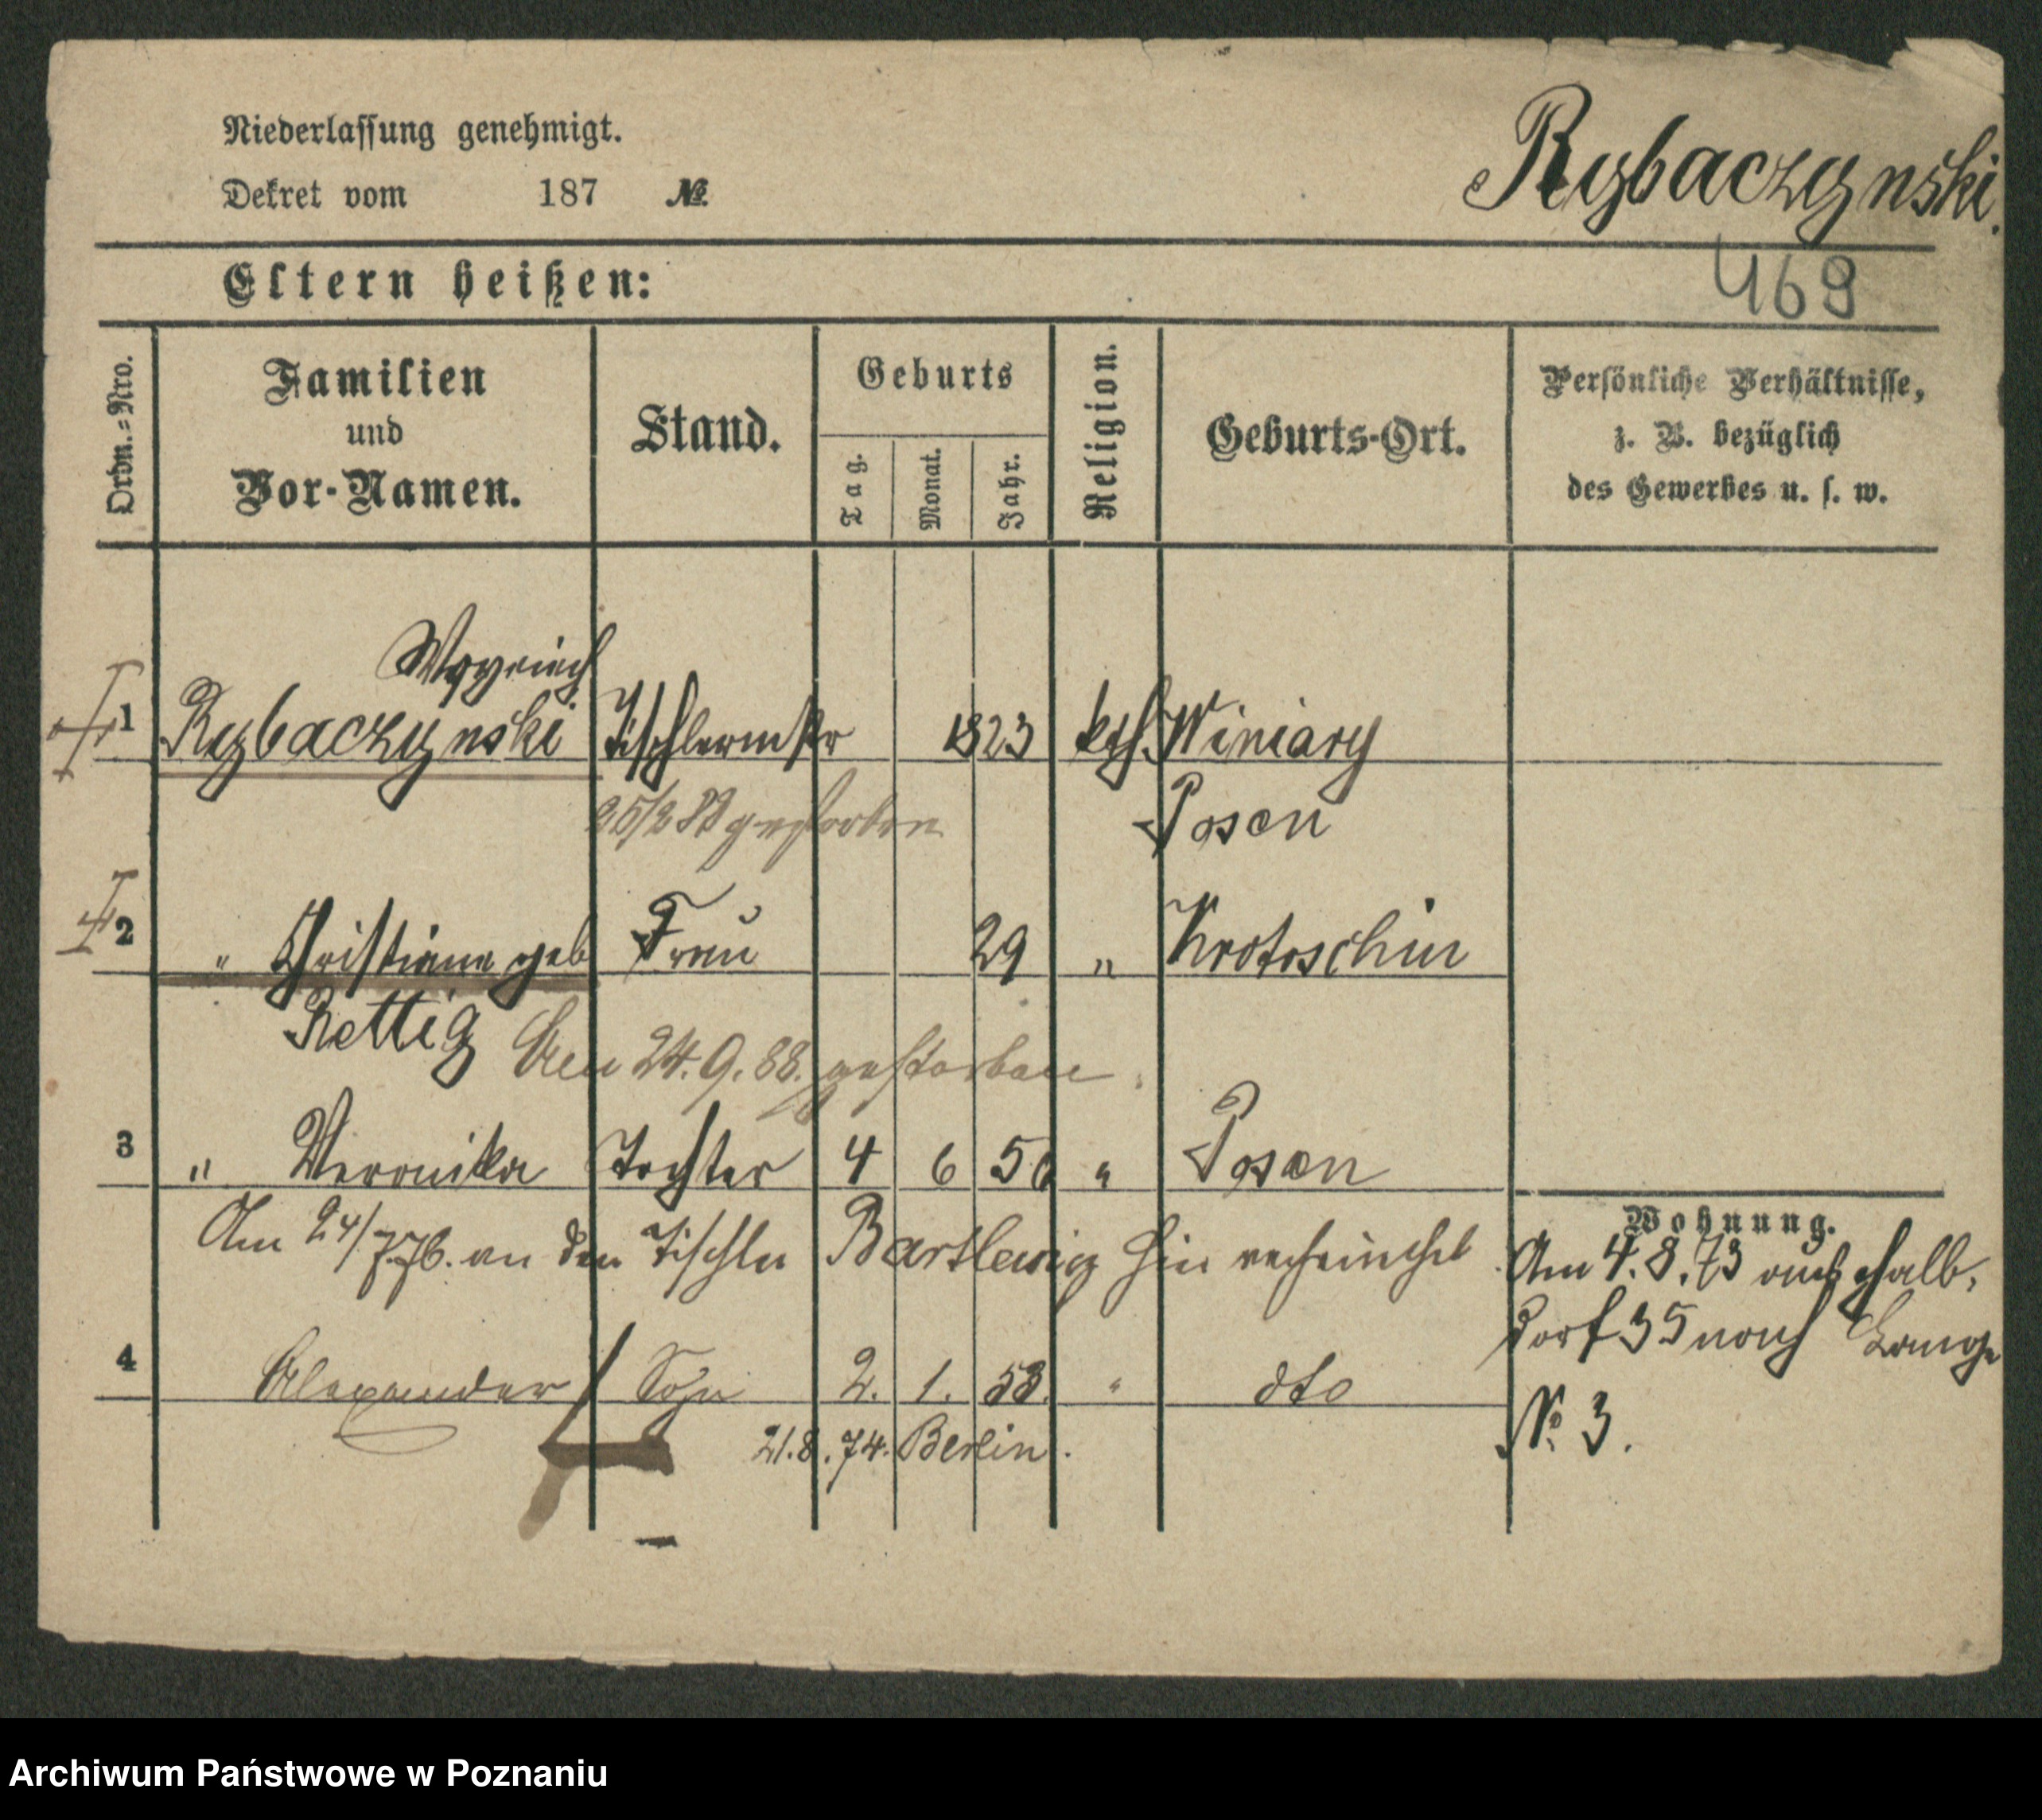 Niederlassung genehmigt.
Dekret vom 187 №
Rybaczynski.
Eltern heißen:
469
Ordn.-Nro.
Familien
und
Vor-Namen.
Stand.
Geburts
Tag.
Monat.
Jahr.
Religion.
Geburts-Ort.
Persönliche Verhältnisse,
z. B. bezüglich
des Gewerbes u. s. w.
1 Rybaczynski Tischlermstr 1823 kth. Winiary
gestorben Posen
2 " Christiana geb Frau 29 " Krotoschin
Rettig Den 24.9.88. gestorben.
3 " Veronika Tochter 4 6 50 " Posen
Am 24/7.76. an den Tischler hier verheirathet
Wohnung.
Am 4.8.73 aus Halb-
dorf 35 nach Lange
№ 3.
4 Alexander Sohn 2. 1. 53. " dto
21.8.74. Berlin.
Archiwum Państwowe w Poznaniu